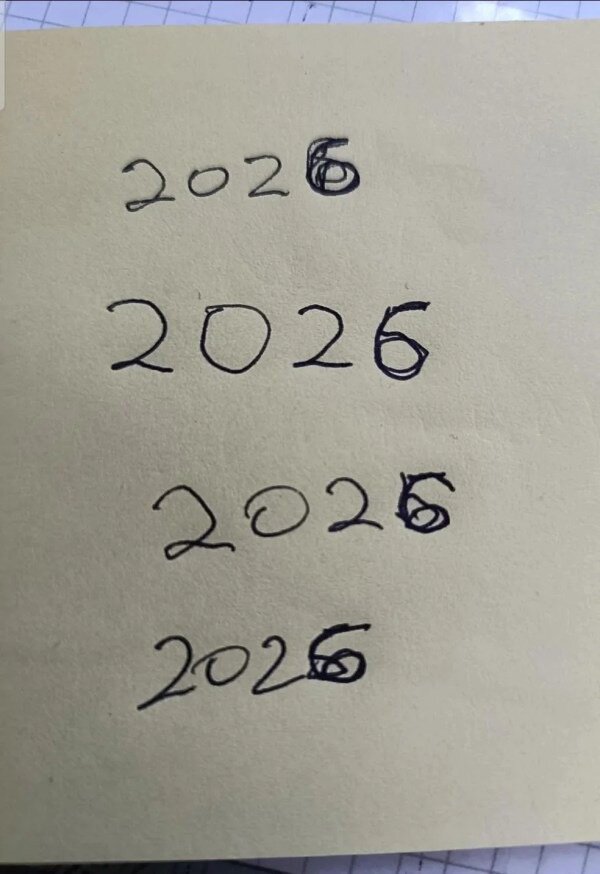 2026
2026
2026
2026